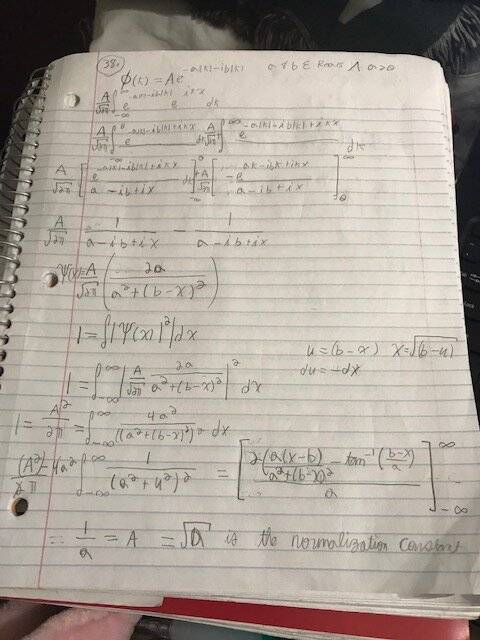 38.
φ(k) = Ae^{-a|k|-ib|k|} a & b ∈ Reals ∧ a>0
A/√2π ∫_{-∞}^{∞} e^{-a|k|-ib|k|} e^{ikx} dk
A/√2π ∫_{-∞}^{0} e^{-a|k|-ib|k|+ikx} dk + A/√2π ∫_{0}^{∞} e^{-a|k|-ib|k|+ikx} dk
A/√2π [ e^{-a|k|-ib|k|+ikx} / a-ib+ix ]_{-∞}^{0} + A/√2π [ -e^{-ak-ibk+ikx} / a-ib+ix ]_{0}^{∞}
A/√2π 1/a-ib+ix - 1/a-ib+ix
Ψ(x) = A/√2π ( 2a / a²+(b-x)² )
1 = ∫|Ψ(x)|²|dx
u = (b-x) x = √(b-u)
du = -dx
1 = ∫_{-∞}^{∞} | A/√2π 2a / a²+(b-x)² |² dx
1 = A²/2π = ∫_{-∞}^{∞} 4a² / ((a²+(b-x)²)² dx
(A²)/2π = 4a² ∫_{-∞}^{∞} 1/(a²+u²)² = [ 2(a(x-b)/a²+(b-x)² - tan⁻¹(b-x/a) / a ]_{-∞}^{∞}
= 1/a = A = √a is the normalization constant